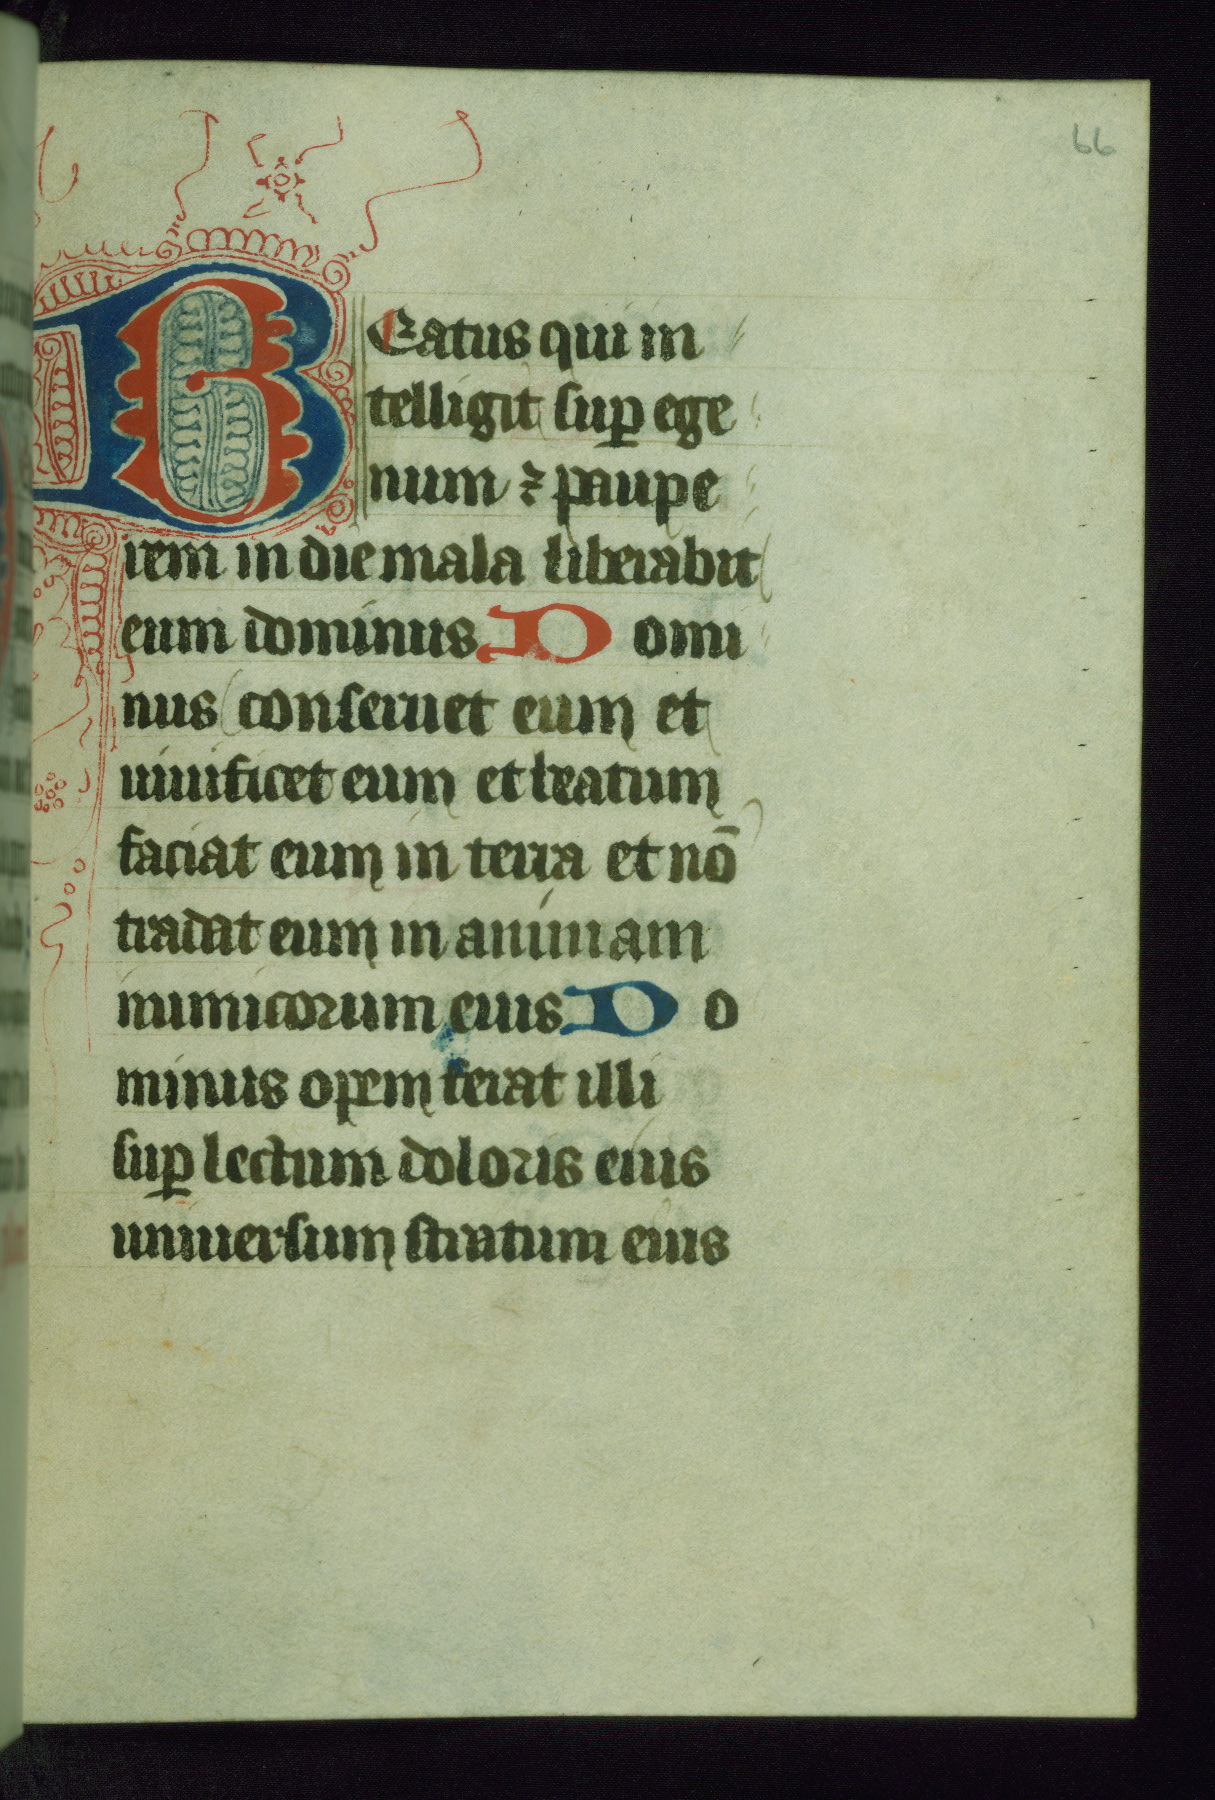 66
BEatus qui in
telligit sup ege
num ⁊ paupe
rem in die mala liberabit
eum dominus Domi
nus conseruet eum et
uiuificet eum et beatum
faciat eum in terra et nō
tradat eum in animam
inimicorum eius Do
minus opem ferat illi
sup lectum doloris eius
uniuersum stratum eius